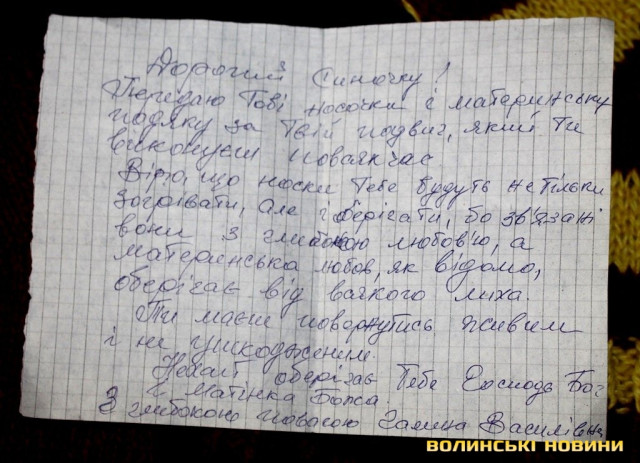 Дорогий Синочку!
Передаю Тобі носочки і материнську
подяку за Твій подвиг, який Ти
виконуєш повсякчас
Вірю, що носки Тебе будуть не тільки
зогрівати, але і оберігати, бо зв'язані
вони з глибокою любов'ю, а
материнська любов, як відомо,
оберігає від всякого лиха.
Ти маєш повернутись живим
і не ушкодженим.
Нехай оберігає Тебе Господь Бог
і Матінка Божа.
З глибокою повагою Галина Василівна
ВОЛИНСЬКІ НОВИНИ